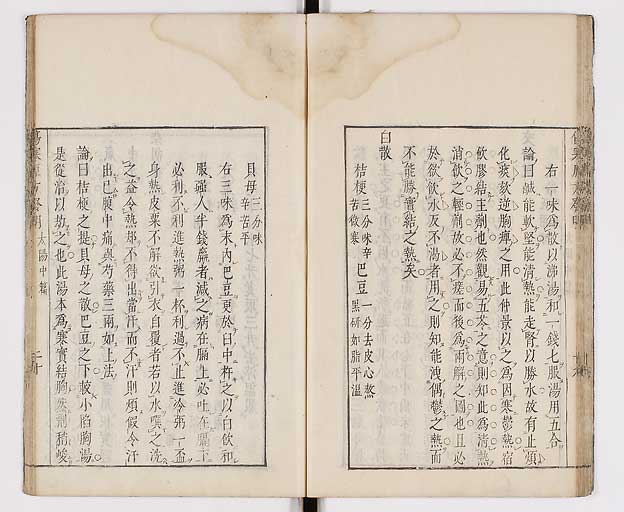 右一味為散以沸湯和一錢七服湯用五合
論曰鹹能軟堅能清熱能走腎以勝水故有止煩
化痰欬逆胸痺之用此仲景以之為因寒鬱熱宿
飲膠結主劑也然觀易五苓之意則知此為清熱
消飲之輕劑故必不瘥而後為兩解之圖也且必
於欲飲水反不渴者用之則知能洩偶鬱之熱而
不能勝實結之熱矣
白散
桔梗三分味辛苦微寒 巴豆一分去皮心熬黑研如脂平溫
貝母三分味辛苦平
右三味為末內巴豆更於臼中杵之以白飲和
服强人半錢羸者減之病在膈上必吐在膈下
必利不利進熱粥一杯利過不止進冷粥一盃
身熱皮粟不解欲引衣自覆者若以水噀之洗
之益令熱却不得出當汗而不汗則煩假令汗
出已腹中痛與芍藥三兩如上法
論曰桔梗之提貝母之散巴豆之下較小陷胸湯
是從治以劫之也此湯本為寒實結胸然劑猪峻
太陽中篇